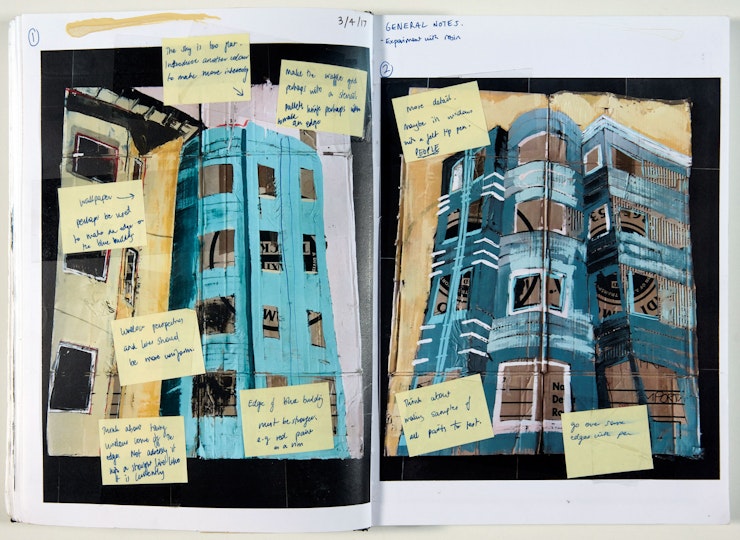 1
3/4/17
The sky is too flat.
Introduce another colour
to make more interesting
make the waffle grid
perhaps with a stencil
perhaps
to make
an edge
Wallpaper →
perhaps be used
to make an edge or
the blue building
Window perspectives
and lines should
be more uniform.
Think about
window come off the
edge. Not adding it
a straight line like
it is currently
Edge of blue building
must be sharper
e.g. red paint
on a rim
GENERAL NOTES.
- Experiment with resin
2
more detail.
maybe in window
with a felt tip pen.
PEOPLE
Think about
making samples of
all parts to test.
go over some
edges with pen
No
De
Ra